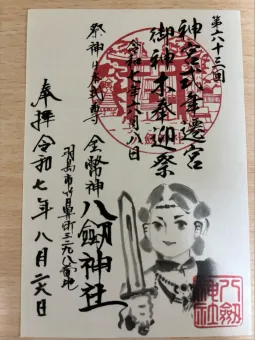 第六十三回
神宮式年遷宮
御神木奉迎祭
令和七年六月八日
祭神 日本武尊
金幣神
八劔神社
羽島市竹鼻町三二九八番地
奉拝 令和七年 八月二六日
八劔神社